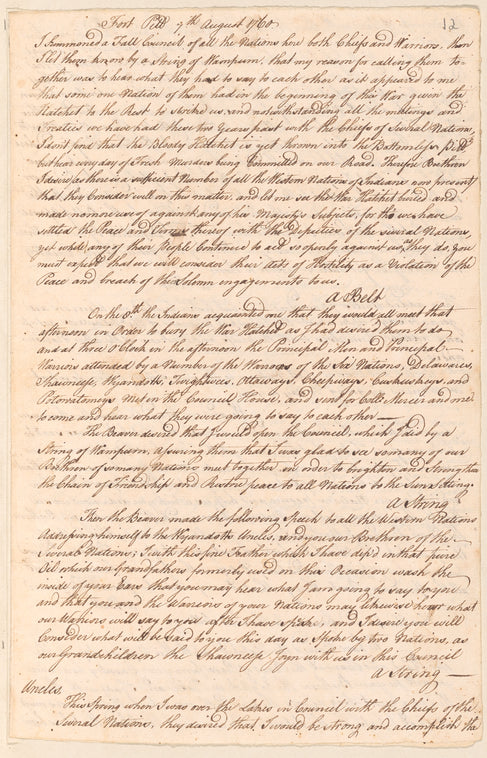 Fort Pitt 7th August 1760
12
I Summoned a Full Council of all the Nations here both Chiefs and Warriors. then
I let them know by a String of Wampum, that my reason for calling them to-
gether was to hear what they had to say to each other as it appeared to me
that some one Nation of them had in the beginning of this War given the
Hatchet to the Rest to Strike us, and notwithstanding all the meetings and
Treaties we have had these two Years past with the Chiefs of Several Nations,
I dont find that the Bloody Hatchet is yet thrown into the Bottomless Pitt
but hear every day of Fresh Murders being Committed on our Road, Therefore Brethren
I desire, as there is a sufficient Number of all the Western Nations of Indians now present
that they Consider well on this matter, and let me see the War Hatchet buried and
made no more use of against any of his Majestys Subjects, for tho we have
settled the Peace and thereof with the Deputies of the several Nations,
yet while any of their People Continue to act so openly against us, as they do, You
must expect that we will consider their Acts of Hostility as a Violation of the
Peace and breach of the Solemn engagements to us.
A Belt
On the 8th the Indians acquainted me that they would all meet that
afternoon in Order to bury the War Hatchet as I had desired them to do
and at three O'Clock in the afternoon the Principal Men and Principal
Warriors attended by a Number of the Warriors of the Six Nations, Delawares,
Shawneese, Wyandotts, Twightwees, Ottaways, Cheepways, Cuskuskeys, and
Potowtomeys Met in the Council House, and sent for Collo. Mercer and me
to come and hear what they were going to say to each other —
The Beaver desired that I would open the Council, which I did by a
String of Wampum, assuring them that I was glad to see so many of our
Brethren of so many Nations met together in order to brighten and Strengthen
the Chain of Friendship and Restore peace to all Nations to the Sun Setting.
A String
Then the Beaver made the following Speech to all the Western Nations
Addressing himself to the Wyandotts Uncles, and you our Brethren of the
Several Nations; I with this fine Feather which I have dip'd in that pure
Oil which our Grandfathers formerly used on this Occasion wash the
inside of your Ears that you may hear what I am going to say to you
and that you and the Warriors of your Nations may likewise hear what
our Warriors will say to you after I have Spoke, and I desire you will
Consider what will be said to you this day as Spoke by two Nations, as
our Grandchildren the Shawneese Joyn with us in this Council
A String —
Uncles,
This Spring when I was over the Lakes in Council with the Chiefs of the
Several Nations, they desired that I would be strong and accomplish the